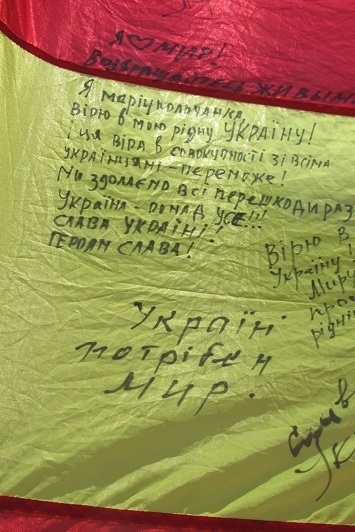 Я ♡ МИР!
ВОЗВРАЩАЙТЕСЬ ЖИВЫМ
Я маріуполочанка
Вірю в мою рідну УКРАЇНУ!
І ця віра в совокупності зі всіма
українцями - переможе!
Ми здолаємо всі перешкоди раз
Україна - понад усе!!!
СЛАВА УКРАЇНІ!
ГЕРОЯМ СЛАВА!
Вірю в
Україну!
Миру
про
рідні
Україні
потрібен
мир.